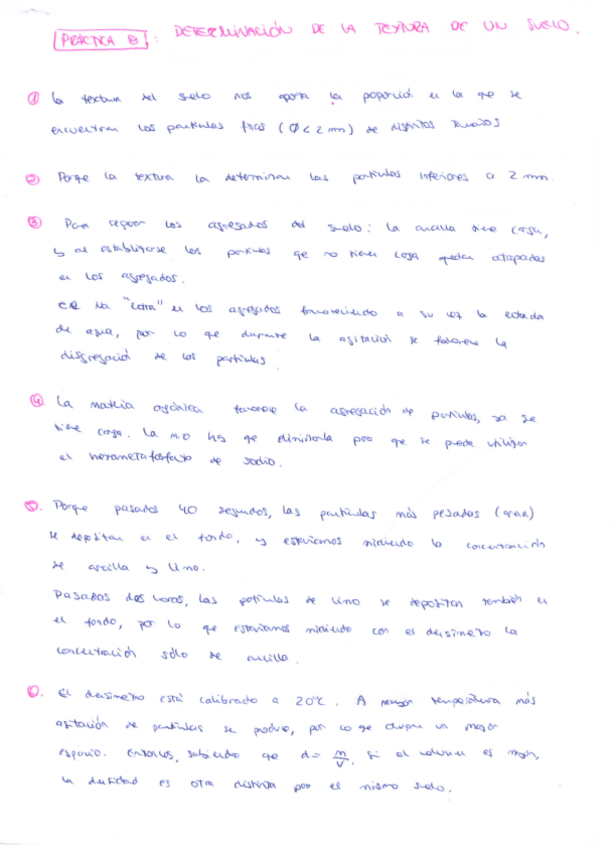 PRÁCTICA 8: DETERMINACIÓN DE LA TEXTURA DE UN SUELO.
① La textura del suelo nos aporta la proporción en la que se
encuentran las partículas finas (Ø < 2 mm) de distintos tamaños
② Porque la textura la determinan las partículas inferiores a 2 mm.
③ Para separar los agregados del suelo: la arcilla tiene carga,
y al estabilizarse las partículas que no tienen carga quedan atrapadas
en los agregados.
en los agregados favoreciendo a su vez la entrada
de agua, por lo que durante la agitación se favorece la
disgregación de las partículas.
④ La materia orgánica favorece la agregación de partículas, ya que
tiene carga. La M.O hay que eliminarla para que se pueda utilizar
el hexametafosfato de sodio.
⑤. Porque pasados 40 segundos, las partículas más pesadas (arena)
se depositan en el fondo, y estaríamos midiendo la concentración
de arcilla y limo.
Pasados dos horas, las partículas de limo se depositan también en
el fondo, por lo que estaríamos midiendo con el densímetro la
concentración sólo de arcilla.
⑥. El densímetro está calibrado a 20°C. A mayor temperatura más
agitación de partículas se produce, por lo que ocupan un mayor
espacio. Entonces, sabiendo que d = m/V, si el volumen es mayor,
la densidad es otra distinta para el mismo suelo.